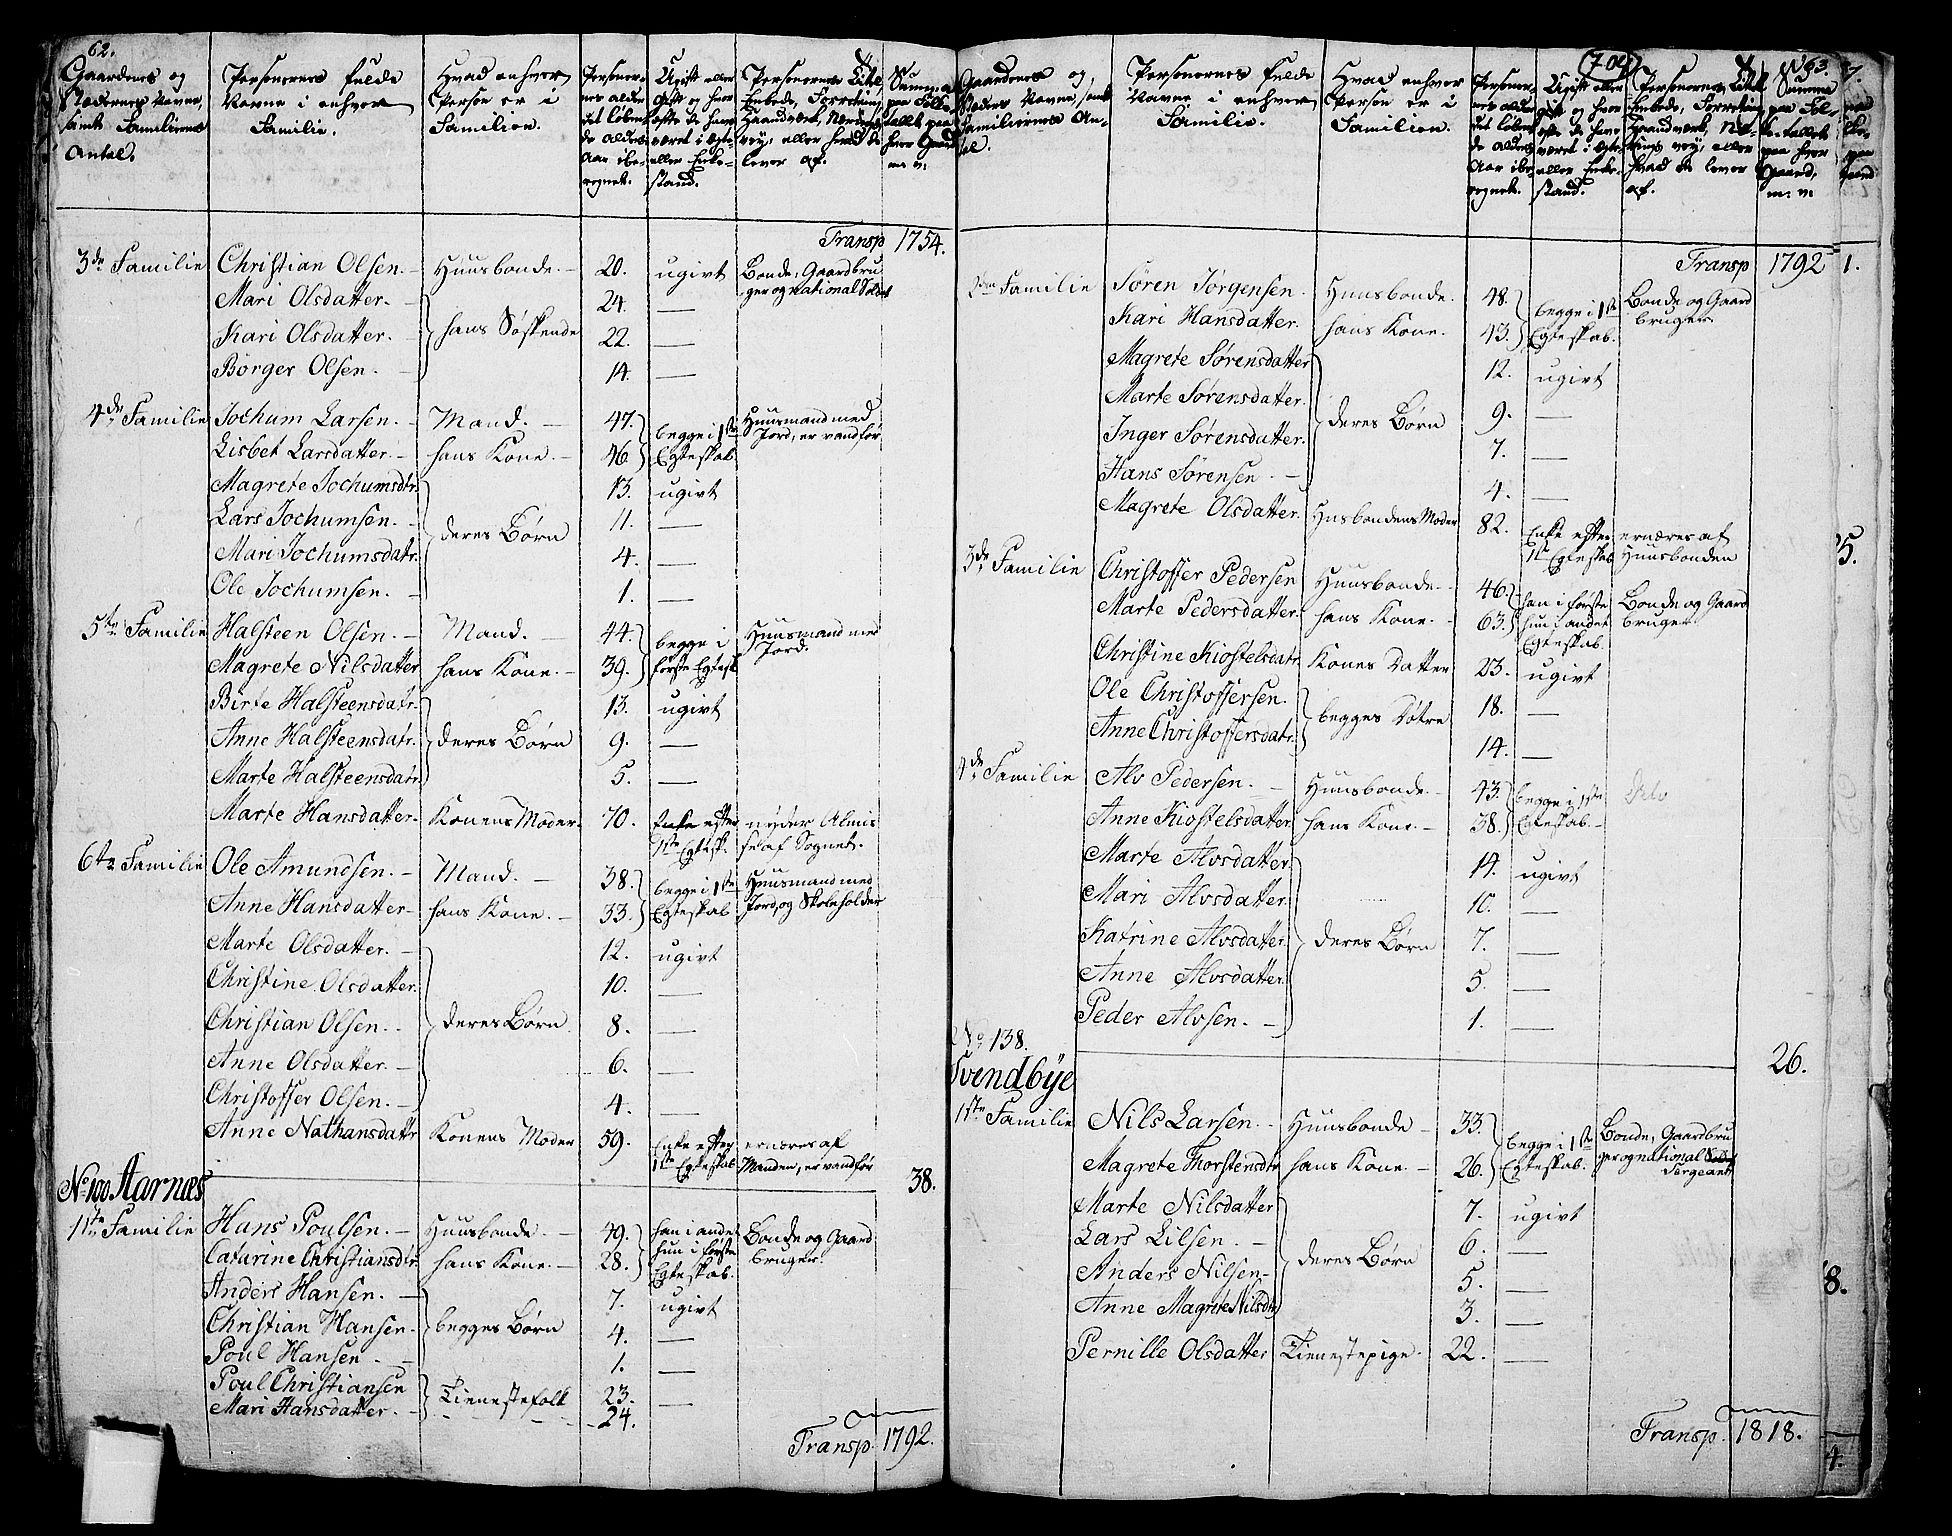 62.
Gaardenes og Stædernes Navne, samt Familiernes Antal.
Personernes fulde Navne i enhver Familie.
Hvad enhver Person er i Familien.
Personernes Alder det løbende Alders Aar iberegnet.
Ugift eller gift og hvor ofte de have været i Ægte- eller Enkestand.
Personernes Titel, Embede, Forretning, Haandværk, Næringsvey, eller hvad de lever af.
Summa paa Folketallet paa hver Gaard m: v:
Transp 1754.
3de Familie Christian Olsen. Huusbonde. 20. ugivt Bonde, Gaardbruger og national Soldat
Mari Olsdatter. 24. —
Kari Olsdatter. hans Søskende 22. —
Børger Olsen. 14. —
4de Familie Jochum Larsen. Mand. 47. begge i 1ste Egteskab. Huusmand med Jord, er vanfør
Lisbet Larsdatter. hans Kone. 46.
Magrete Jochumsdtr. 13. ugivt
Lars Jochumsen. deres Børn 11. —
Mari Jochumsdatr. 4. —
Ole Jochumsen. 1. —
5te Familie Halsteen Olsen. Mand. 44. begge i første Egtesk. Huusmand med Jord.
Magrete Nilsdatter hans Kone. 39.
Birte Halsteensdatr. 13. ugivt
Anne Halsteensdatr. deres Børn 9. —
Marte Halsteensdatr. 5. —
Marte Hansdatter. Konens Moder. 70. Enke efter 1ste Egtesk. nyder Almisse af Sognet.
6te Familie Ole Amundsen. Mand. 38. begge i 1ste Egteskab Huusmand med Jord, og Skoleholder
Anne Hansdatter hans Kone. 33.
Marte Olsdatter. 12. ugivt
Christine Olsdatter. 10. —
Christian Olsen. deres Børn 8. —
Anne Olsdatter. 6. —
Christoffer Olsen. 4. —
Anne Nathansdattr Konens Moder 59. Enke efter 1ste Egteskab ernæres af Manden, er vanfør
38.
No 100 Aarnæs
1ste Familie Hans Poulsen. Huusbonde. 49. han i andet hun i første Egteskab. Bonde og Gaardbruger.
Catarine Christiansdtr. hans Kone. 28.
Anders Hansen. 7. ugivt
Christian Hansen. begges Børn 4. —
Poul Hansen 1. —
Poul Christiansen Tienestefolk 23. —
Mari Hansdatter. 24.
Transp. 1792.
709
63.
Gaardenes og Stædernes Navne, samt Familiernes Antal.
Personernes fulde Navne i enhver Familie.
Hvad enhver Person er i Familien.
Personernes Alder det løbende Alders Aar iberegnet.
Ugift eller gift og hvor ofte de have været i Ægte- eller Enkestand.
Personernes Titel, Embede, Forretning, Haandværk, Næringsvey, eller hvad de lever af.
Summa paa Folketallet paa hver Gaard, m: v:
Transp 1792
2den Familie Søren Jørgensen. Huusbonde. 48. begge i 1ste Egteskab. Bonde og Gaardbruger.
Kari Hansdatter. hans Kone. 43.
Magrete Sørensdatter 12. ugivt
Marte Sørensdatter. deres Børn 9. —
Inger Sørensdatter. 7. —
Hans Sørensen. 4. —
Magrete Olsdatter. Husbondens Moder 82. Enke efter 1ste Egteskab ernæres af Huusbonden
3de Familie Christoffer Pedersen Huusbonde. 46. han i første hun i andet Egteskab. Bonde og Gaardbruger.
Marte Pedersdatter. hans Kone. 63.
Christine Kiostelsdatr. Kones Datter 23. ugivt
Ole Christoffersen. begges Døtre 18. —
Anne Christoffersdatr. 14. —
4de Familie Alv Pedersen. Huusbonde. 43. begge i 1ste Egteskab.
Anne Kiostelsdatter. hans Kone. 38.
Marte Alvsdatter 14. ugivt
Mari Alvsdatter. 10. —
Katrine Alvsdatter. deres Børn 7. —
Anne Alvsdatter. 5. —
Peder Alvsen. 1. —
26.
No 138.
Svendbÿe
1ste Familie Nils Larsen. Huusbonde 33. begge i 1ste Egteskab. Bonde, Gaardbruger og national Sergeant
Magrete Thorstensdtr hans Kone. 26.
Marte Nilsdatter 7. ugivt
Lars Lilsen. 6. —
Anders Nilsen deres Børn 5. —
Anne Magrete Nilsdtr 3. —
Pernille Olsdatter Tienestepige 22. —
Transp. 1818.